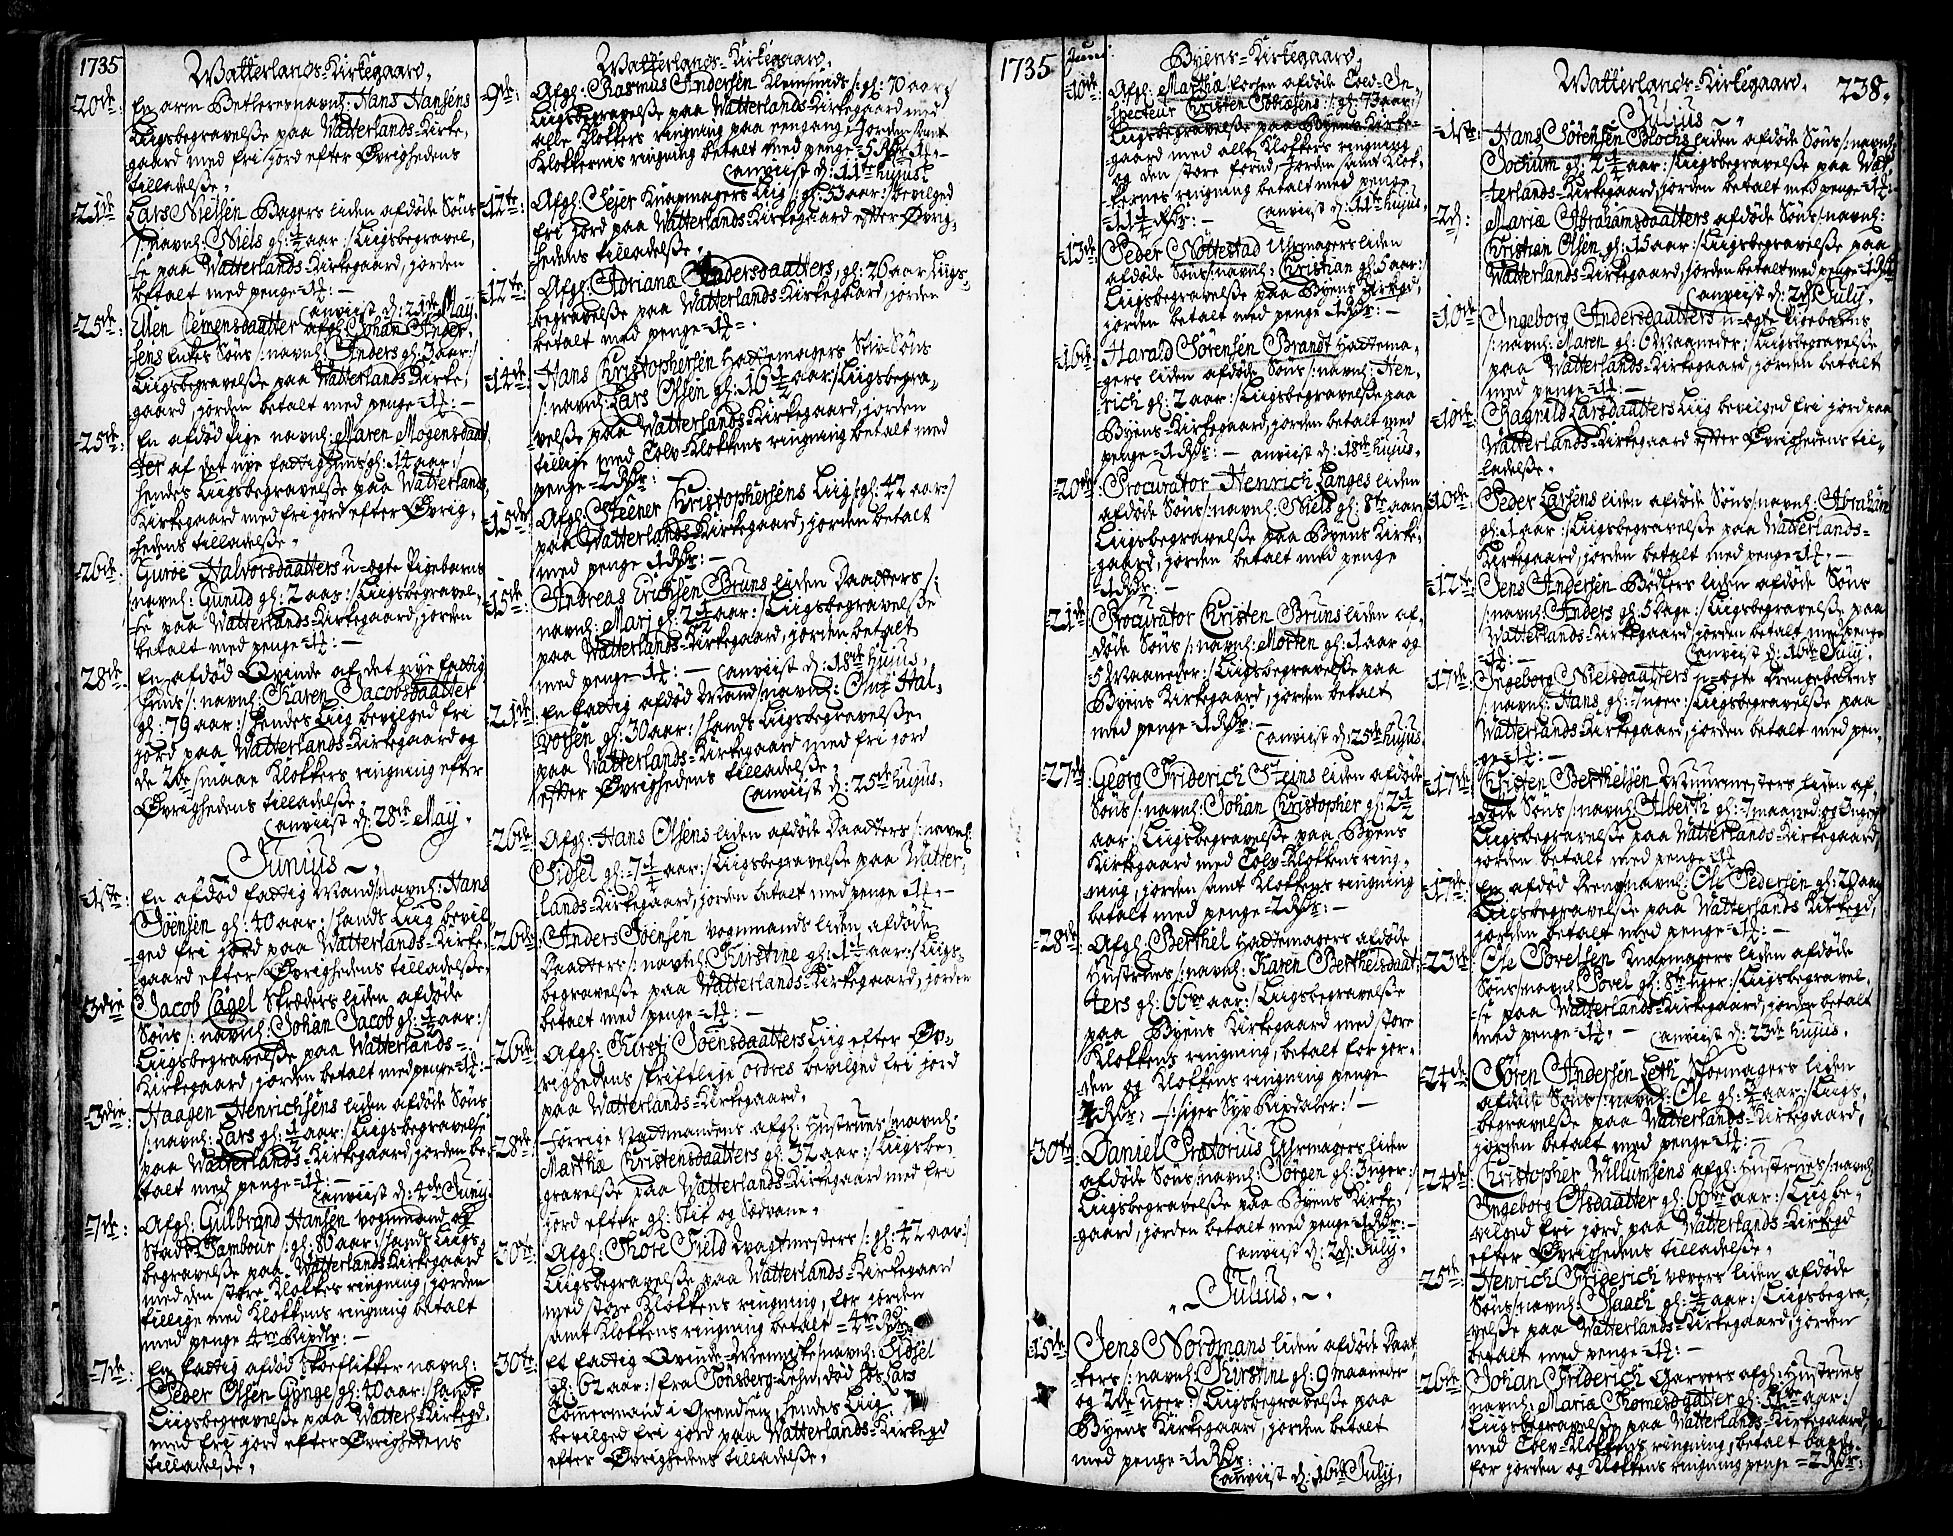 1735
Watterlands-Kirkegaard.
20de: En arm Betlerer navnl: Hans Hansens
Liigsbegravelsse paa Watterlands-Kirke,
gaard med fri jord efter Øvrighedens
tilladelsse.
21de Lars Nielsen Bagers liden afdøde Søns
/:navnl: Niels gl: ½ aar:/ Liigsbegravel,
se paa Watterlands-Kirkegaard, jorden
betalt med penge =1½: —
Canviist d: 21de May.
25de: Ellen Clemensdaatter afgl: Johan Anders,
sens Enkes Søns /:navnl: Anders gl: 3 aar:/
Liigsbegravelsse paa Watterlands-Kirke,
gaard, jorden betalt med penge =1½: —
25de: En afdød Pige navnl: Maren Mogensdaat,
ter af det nye fattighuus gl: 14 aar:/
hendes Liigsbegravelsse paa Watterlands
Kirkegaard med fri jord efter Øvrig,
hedens tilladelsse.
26de: Guroe Halvorsdaatters u-ægte Pigebarns
/:navnl: Gunild gl: 2 aar:/ Liigsbegravel,
se paa Watterlands-Kirkegaard, jorden
betalt med penge =1½: —
28de: En afdød Qvinde af det nye fattig
huus /:navnl: Karen Jacobsdaatter
gl: 79 aar:/ hendes Liig bevilged fri
jord paa Watterlands-Kirkegaard og
de 2de smaae Klokkers ringning efter
Øvrighedens tilladelsse.
Canviist d: 28de May.
Junius
1ste: En afdød fattig Mand /:navnl: Hans
Joensen gl: 40 aar:/ hands Liig bevil
ged fri jord paa Watterlands-Kirke,
gaard efter Øvrighedens tilladelsse.
3die Jacob Cagel Skræders liden afdøde
Søns /:navnl: Johan Jacob gl: ½ aar:/
Liigsbegravelsse paa Watterlands-
Kirkegaard, jorden betalt med penge =1½: —
3die: Haagen Henrichsens liden afdøde Søns
/:navnl: Lars gl: ½ aar:/ Liigsbegravelsse
paa Watterlands-Kirkegaard, jorden be,
talt med penge =1½: —
Canviist d: 4de Junij.
7de: Afgl: Gulbrand Hansen vognmand og
Stads Tambour /:gl: 80 aar:/ hands Liigs,
begravelsse paa Watterlands-Kirkegaard
med den store Klokkes ringning, jorden
tillige med Klokkens ringning betalt
med penge 4re Rixdlr: —
7de: En fattig afdød Skoeflikker navnl:
Peder Olsen Gynge /:gl: 40 aar:/ hands
Liigsbegravelsse paa Watterl:-Kirkegd.
med fri jord efter Øvrighedens
tilladelsse.
Watterlands-Kirkegaard.
9de: Afgl: Rasmus Andersen Kleinsmids /:gl: 70 aar:/
Liigsbegravelsse paa Watterlands-Kirkegaard med
alle Klokkers ringning paa eengang, jorden samt
Klokkernes ringning betalt med penge =5 Rdr: 1½: —
Canviist d: 11te hujus.
12te: Afgl: Sejer Knapmagers Liig /:gl: 33 aar:/ bevilged
fri jord paa Watterlands-Kirkegaard efter Øvrig,
hedens tilladelsse.
12te: Afgl: Adriana Andersdaatters, gl: 26 aar Liigs,
begravelsse paa Watterlands-Kirkegaard, jorden
betalt med penge =1½ —.
14de: Hans Christophersen Hattemagers Stiv-Søns
/:navnl: Lars Olsen gl: 16½ aar:/ Liigsbegra,
velsse paa Watterlands-Kirkegaard, jorden
tillige med Tolv-Klokkens ringning betalt med
penge =2 Rdr: —
15de: Afgl: Steener Christophersens Liig /:gl: 42 aar:/
paa Watterlands-Kirkegaard, jorden betalt
med penge 1 Rdr: —
15de: Andreas Erichsen Bruns liden Daatters /:
navnl: Mari gl: 2½ aar:/ Liigsbegravelsse
paa Watterlands-Kirkegaard, jorden betalt
med penge =1½: — Canviist d: 18de hujus.
21de: En fattig afdød Mand /:navnl: Oluf Hal,
vorsen gl: 30 aar:/ hands Liigsbegravelsse
paa Watterlands-Kirkegaard med fri jord
efter Øvrighedens tilladelsse.
Canviist d: 25de hujus.
26de: Afgl: Hans Olsens liden afdøde Daatters /:navnl:
Sidsel gl: 7½ aar:/ Liigsbegravelsse paa Watter,
lands-Kirkegaard, jorden betalt med penge =1½: —
26de: Anders Joensen vognmands liden afdøde
Daatters /:navnl: Kirstine gl: 1½ aar:/ Liigs,
begravelsse paa Watterlands-Kirkegaard, jorden
betalt med penge =1½: —
26de: Afgl: Kirsti Joensdaatters Liig efter Øv,
righedens skriftlige ordres bevilged fri jord
paa Watterlands-Kirkegaard.
28de: Forrige Vagtmandens afgl: Hustrues /:navnl:
Martha Christensdaatters gl: 32 aar:/ Liigsbe,
gravelsse paa Watterlands-Kirkegaard med fri
jord efter gl: Skik og Sædvane.
30te: Afgl: Thore Field Wagtmesters /:gl: 42 aar:/
Liigsbegravelsse paa Watterlands-Kirkegaard
med store Klokkens ringning, for jorden
samt Klokkens ringning betalt =4re Rdr: —
30te: Et fattig Qvinde-Menniske /:navnl: Sidsel
gl: 62 aar:/ fra Tønsberg-Lehn, død hos Lars
Tømmermand i Grendsen, hendes Liig
bevilged fri jord paa Watterlands-Kirkegd
efter Øvrighedens tilladelsse.
1735 Junii.
Byens-Kirkegaard.
10de: Afgl: Martha /:forhen afdøde Told-In,
specteur Christen Tohasens:/ gl: 73 aar:/
Liigsbegravelsse paa Byens-Kirke,
gaard med alle Klokkers ringning
og den store forud, jorden samt Klok,
kernes ringning betalt med penge
=11½ Rdr: — Canviist d: 11te hujus.
13de: Peder Nøttestad Uhrmagers liden
afdøde Søns /:navnl: Christian gl: 5 aar:/
Liigsbegravelsse paa Byens Kirkegd,
jorden betalt med penge 1 Rdr: —
16de: Harald Sørensen Brandt Hattema,
gers liden afdøde Søns /:navnl: Hen,
rich gl: 2 aar:/ Liigsbegravelsse paa
Byens-Kirkegaard, jorden betalt med
penge =1 Rdr: — anviist d: 18de hujus.
20de: Procurator Henrich Langes liden
afdøde Søns /:navnl: Niels gl: 8te aar:/
Liigsbegravelsse paa Byens Kirke,
gaard, jorden betalt med penge
=1 Rdr: —
21de: Procurator Christen Bruns liden af,
døde Søns /:navnl: Morten gl: 1 aar og
5 Maaneder:/ Liigsbegravelsse paa
Byens Kirkegaard, jorden betalt
med penge =1 Rdr: —
Canviist d: 25de hujus.
27de: Georg Friderich Steins liden afdøde
Søns /:navnl: Johan Christopher gl: 2½
aar:/ Liigsbegravelsse paa Byens
Kirkegaard med Tolv-Klokkens ring,
ning, jorden samt Klokkens ringning
betalt med penge =2 Rdr: —
28de: Afgl: Berthel Hattemagers afdøde
Hustrues /:navnl: Karen Berthelsdaat,
ters gl: 66 aar:/ Liigsbegravelsse
paa Byens Kirkegaard med store
Klokkens ringning, betalt for jor,
den og Klokkens ringning penge
7 Rdr. —/:siger Syv Rixdaler:/ —
30te: Daniel Prætorius Uhrmagers liden
afdøde Søns /:navnl: Jørgen gl: 3 uger:/
Liigsbegravelsse paa Byens Kirke,
gaard, jorden betalt med penge 1 Rdr: —
Canviist d: 2d: Julij.
Julius.
15de: Jens Nordmans liden afdøde Daat
ters /:navnl: Kirstine gl: 9 maaneder
og 2de uger:/ Liigsbegravelsse paa
Byens Kirkegaard, jorden betalt
med penge =1 Rdr: —
Canviist d: 16de Julij.
Watterlands-Kirkegaard. 238.
Julius
1ste: Hans Sørensen Blochs liden afdøde Søns /:navnl:
Jochum gl: 2½ aar:/ Liigsbegravelsse paa Wat,
terlands-Kirkegaard, jorden betalt med penge =1½: —
2d: Maria Abrahamsdaatters afdøde Søns /:navnl:
Christian Olsen gl: 15 aar:/ Liigsbegravelsse paa
Watterlands-Kirkegaard, jorden betalt med penge =1 Rdr:
Canviist d: 2d Julij.
10de: Ingeborg Andersdaatters u-ægte Pigebarns
/:navnl: Maren gl: 6 Maaneder:/ Liigsbegravelsse
paa Watterlands-Kirkegaard, jorden betalt
med penge =1½: —
10de: Ragnild Larsdaatters Liig bevilged fri jord paa
Watterlands-Kirkegaard efter Øvrighedens til,
ladelsse.
10de: Peder Larsens liden afdøde Søns /:navnl: Abraham
gl: 1 aar:/ Liigsbegravelsse paa Watterlands-
Kirkegaard, jorden betalt med penge =1½: —
12te: Jens Andersen Bødkers liden afdøde Søns
/:navnl: Anders gl: 5 Dage:/ Liigsbegravelsse paa
Watterlands-Kirkegaard, jorden betalt med penge
=1½: — Canviist d: 16de Julij.
17de: Ingeborg Nielsdaatters u-ægte Drengebarns
/:navnl: Hans gl: 7 uger:/ Liigsbegravelsse paa
Watterlands-Kirkegaard, jorden betalt med pen,
ge =1½: —
17de: Christen Berthelsen Muurmesters liden af,
døde Søns /:navnl: Alberth gl: 7 maaned: og 3 uger:/
Liigsbegravelsse paa Watterlands-Kirkegaard,
jorden betalt med penge =1½
17de: En afdød Dreng /:navnl: Ole Pedersen gl: 20 aar:/
Liigsbegravelsse paa Watterlands Kirkegd,
jorden betalt med penge =1½: —
23de: Ole Povelsen Knapmagers liden afdøde
Søns /:navnl: Povel gl: 8te uger:/ Liigsbegravel,
se paa Watterlands-Kirkegaard, jorden betalt
med penge =1½. — Canviist d: 23de hujus.
24de: Søren Andersen Leth Skoemagers liden
afdøde Søns /:navnl: Ole gl: ¾ aar:/ Liigs,
begravelsse paa Watterlands-Kirkegaard,
jorden betalt med penge =1½: —
24de: Christopher Willumsens afgl: Hustrues /:navnl:
Ingeborg Olsdaatter gl: 60 aar:/ Liig be,
vilged fri jord paa Watterlands-Kirkegd
efter Øvrighedens tilladelsse.
25de: Henrich Friderich vævers liden afdøde
Søns /:navnl: Isaach gl: ½ aar:/ Liigsbegra,
velsse paa Watterlands-Kirkegaard, jorden
betalt med penge =1½: —
26de: Johan Friderich Garvers afgl: Hustrues
/:navnl: Maria Thomesdaatter gl: aar:/
Liigsbegravelsse paa Watterlands-Kirkegaard,
med Tolv-Klokkens ringning, betalt baade
for jorden og Klokkens ringning penge =2 Rdr: